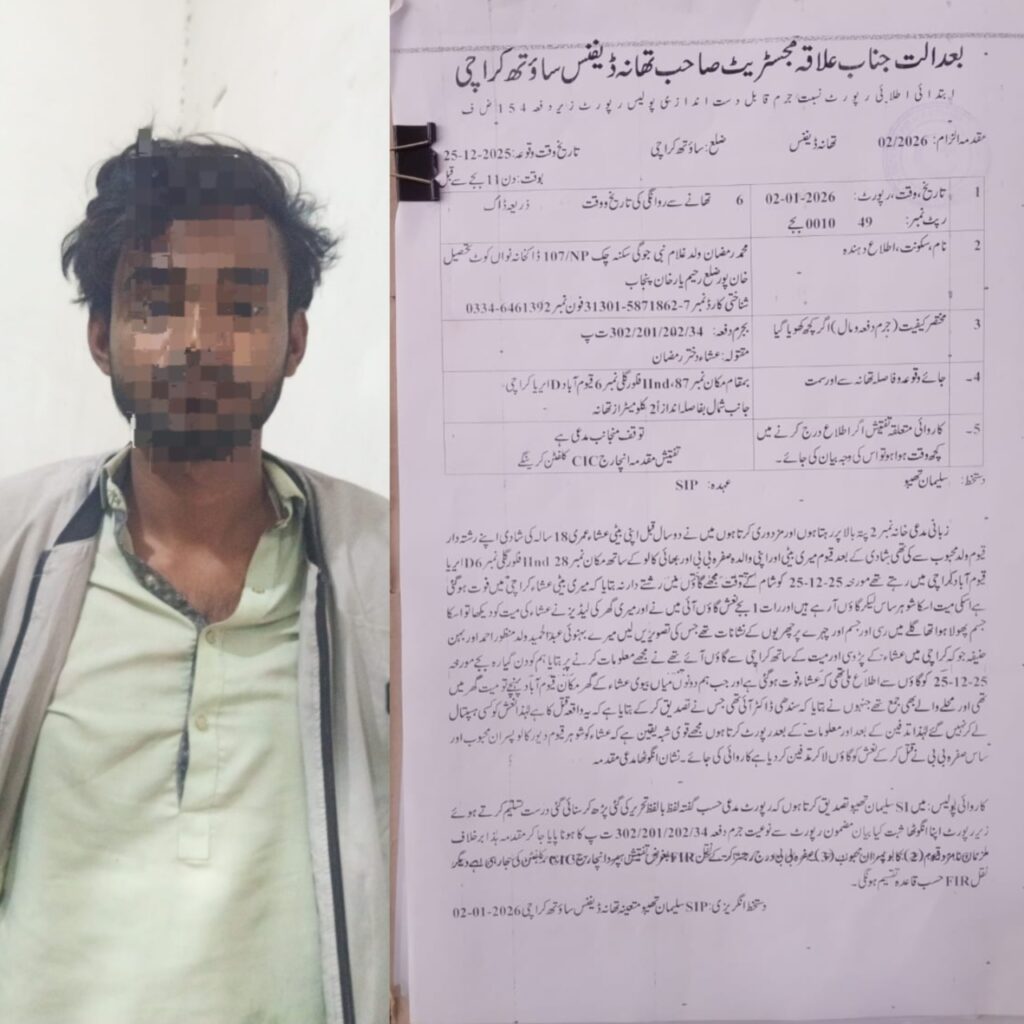 بعدالت جناب علاقہ مجسٹریٹ صاحب تھانہ ڈیفنس ساؤتھ کراچی
ابتدائی اطلائی رپورٹ نسبت جرم قابل دست اندازی پولیس رپورٹ زیر دفعہ 154 ض ف
مقدمہ الزام: 02/2026 تھانہ ڈیفنس ضلع: ساؤتھ کراچی تاریخ وقت وقوعہ: 25-12-2025
بوقت: دن 11 بجے سے قبل
1 تاریخ، وقت، رپورٹ: 02-01-2026 6 تھانے سے روانگی کی تاریخ و وقت ذریعہ ڈاک
رپٹ نمبر: 49 0010 بجے
2 نام، سکونت، اطلاع دہندہ محمد رمضان ولد غلام نبی جوگی سکنہ چک 107/NP ڈاکخانہ نواں کوٹ تحصیل
خان پور ضلع رحیم یار خان پنجاب
شناختی کارڈ نمبر 7-5871862-31301 فون نمبر 0334-6461392
3 مختصر کیفیت (جرم دفعہ و مال) اگر کچھ کھویا گیا بجرم دفعہ: 302/201/202/34 ت پ
مقتولہ: عشاء دختر رمضان
4۔ جائے وقوعہ و فاصلہ تھانہ سے اور سمت بمقام مکان نمبر 87، IInd فلور گلی نمبر 6 قیوم آباد D ایریا کراچی
جانب شمال بفاصلہ اندازاً 2 کلومیٹر از تھانہ
5۔ کاروائی متعلقہ تفتیش اگر اطلاع درج کرنے میں توقف منجانب مدعی ہے
کچھ وقت ہوا ہو تو اس کی وجہ بیان کی جائے۔ تفتیش مقدمہ انچارج CIC کلفٹن کرینگے
دستخط: سلیمان تھیپو عہدہ: SIP
زبانی مدعی خانہ نمبر 2 پتہ بالا پر رہتا ہوں اور مزدوری کرتا ہوں میں نے دو سال قبل اپنی بیٹی عشاء عمری 18 سالہ کی شادی اپنے رشتہ دار
قیوم ولد محبوب سے کی تھی شادی کے بعد قیوم میری بیٹی اور اپنی والدہ صفرہ بی بی اور بھائی کالو کے ساتھ مکان نمبر 28 IInd فلور گلی نمبر D6 ایریا
قیوم آباد کراچی میں رہتے تھے مورخہ 25-12-25 کو شام کے وقت مجھے گاؤں میں رشتے دار نہ بتایا کہ میری بیٹی عشاء کراچی میں فوت ہوگئی
ہے اسکی میت اسکا شوہر ساس لیکر گاؤں آ رہے ہیں اور رات 1 بجے نعش گاؤں آئی میں نے اور میری گھر کی لیڈیز نے عشاء کی میت کو دیکھا تو اسکا
جسم پھولا ہوا تھا گلے میں رسی اور جسم اور چہرے پر چھریوں کے نشانات تھے جس کی تصویریں لیں میرے بہنوئی عبدالحمید ولد منظور احمد اور بہن
حنیفہ جو کہ کراچی میں عشاء کے پڑوسی اور میت کے ساتھ کراچی سے گاؤں آئے تھے نے مجھے معلومات کرنے پر بتایا ہم کو دن گیارہ بجے مورخہ
25-12-25 کو گاؤں سے اطلاع ملی تھی کہ عشاء فوت ہوگئی ہے اور جب ہم دونوں میاں بیوی عشاء کے گھر مکان قیوم آباد پہنچے تو میت گھر میں
تھی اور محلے والے بھی جمع تھے جنہوں نے بتایا کہ سندھی ڈاکٹر آئی تھی جس نے تصدیق کر کے بتایا ہے کہ یہ واقعہ قتل کا ہے لہٰذا نعش کو کسی ہسپتال
لے کر نہیں گئے لہٰذا تدفین کے بعد اور معلومات کے بعد رپورٹ کرتا ہوں مجھے قوی شبہ یقین ہے کہ عشاء کو شوہر قیوم دیور کالو پسران محبوب اور
ساس صفرہ بی بی نے قتل کر کے نعش کو گاؤں لا کر تدفین کر دیا ہے کاروائی کی جائے۔ نشان انگوٹھا مدعی مقدمہ
کاروائی پولیس: میں SI سلیمان تھیپو تصدیق کرتا ہوں کہ رپورٹ مدعی حسب گفتہ لفظ بالفظ تحریر کی گئی پڑھ کر سنائی گئی درست تسلیم کرتے ہوئے
زیر رپورٹ اپنا انگوٹھا ثبت کیا بیان مضمون رپورٹ سے نوعیت جرم دفعہ 302/201/202/34 ت پ کا ہونا پایا جا کر مقدمہ ہذا برخلاف
ملزمان نامزد قیوم (2) کالو پسران محبوب (3) صفرہ بی بی درج رجسٹر کر کے نقل FIR بغرض تفتیش سپرد انچارج CIC کلفٹن کی جا رہی ہے دیگر
نقل FIR حسب قاعدہ تقسیم ہونگی۔
دستخط انگریزی: SIP سلیمان تھیپو متعینہ تھانہ ڈیفنس ساؤتھ کراچی 02-01-2026